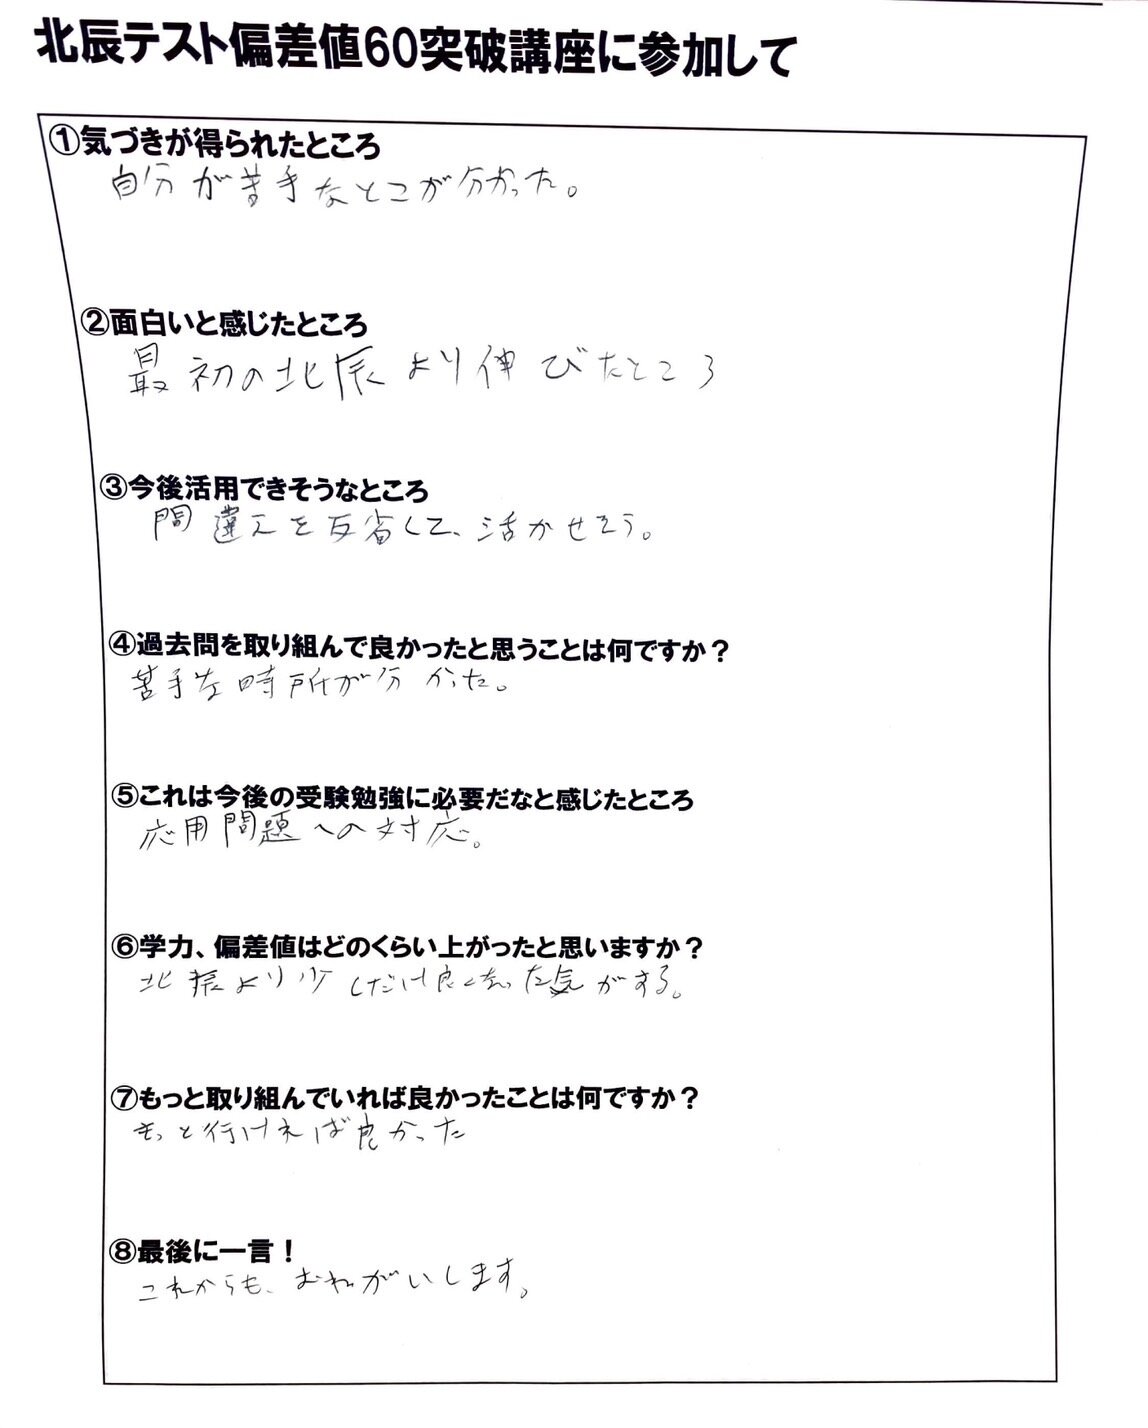 北辰テスト偏差値60突破講座に参加して
①気づきが得られたところ
自分が苦手なとこが分かった。
②面白いと感じたところ
最初の北辰より伸びたところ
③今後活用できそうなところ
間違えを反省して、活かせそう。
④過去問を取り組んで良かったと思うことは何ですか？
苦手な時所が分かった。
⑤これは今後の受験勉強に必要だなと感じたところ
応用問題への対応。
⑥学力、偏差値はどのくらい上がったと思いますか？
北振より少しだけ良くなった気がする。
⑦もっと取り組んでいれば良かったことは何ですか？
もっと行ければ良かった
⑧最後に一言！
これからも、おねがいします。